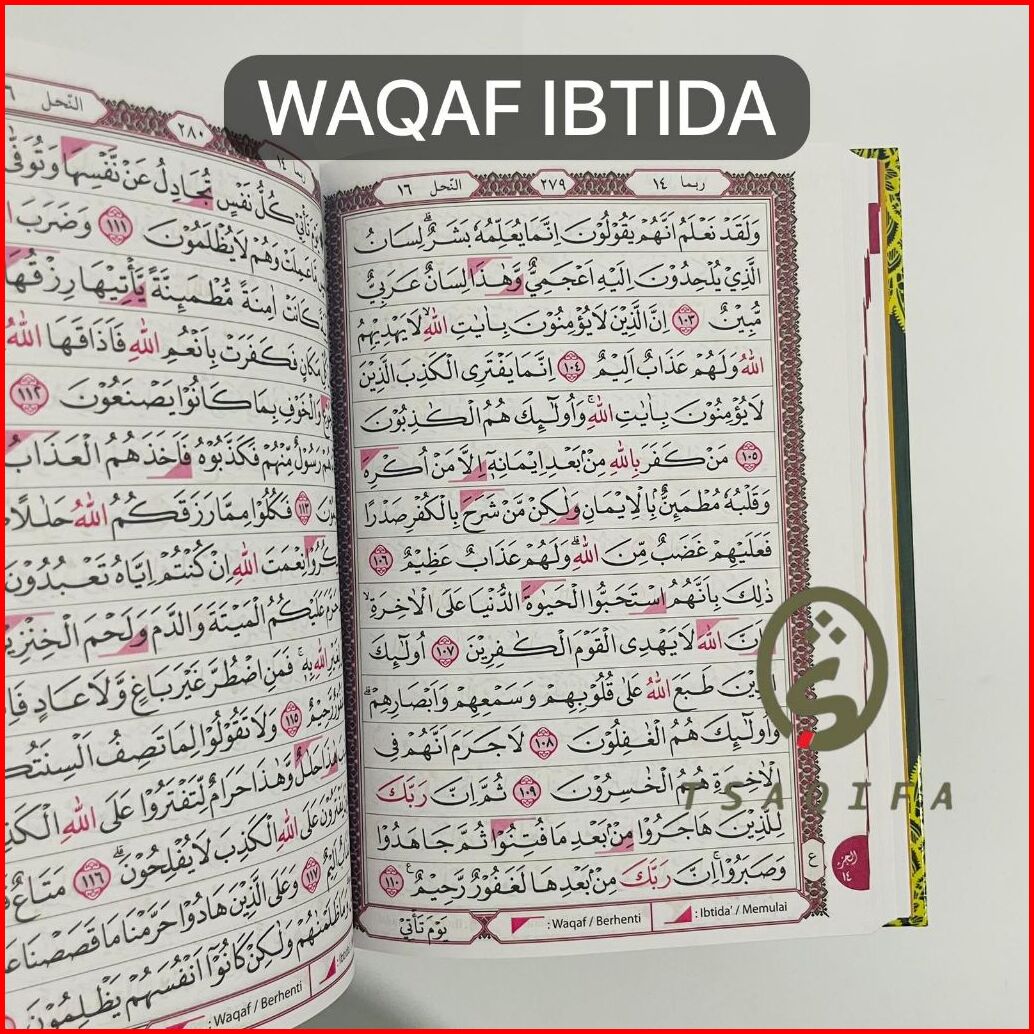 WAQAF IBTIDA
ربما ١٤
٢٧٩
النحل ١٦
وَلَقَدْ نَعْلَمُ اَنَّهُمْ يَقُوْلُوْنَ اِنَّمَا يُعَلِّمُهٗ بَشَرٌۗ لِسَانُ
الَّذِيْ يُلْحِدُوْنَ اِلَيْهِ اَعْجَمِيٌّ وَّهٰذَا لِسَانٌ عَرَبِيٌّ
مُّبِيْنٌ ١٠٣ اِنَّ الَّذِيْنَ لَا يُؤْمِنُوْنَ بِاٰيٰتِ اللّٰهِۙ لَا يَهْدِيْهِمُ
اللّٰهُ وَلَهُمْ عَذَابٌ اَلِيْمٌ ١٠٤ اِنَّمَا يَفْتَرِى الْكَذِبَ الَّذِيْنَ
لَا يُؤْمِنُوْنَ بِاٰيٰتِ اللّٰهِۚ وَاُولٰۤىِٕكَ هُمُ الْكٰذِبُوْنَ
١٠٥ مَنْ كَفَرَ بِاللّٰهِ مِنْۢ بَعْدِ اِيْمَانِهٖٓ اِلَّا مَنْ اُكْرِهَ
وَقَلْبُهٗ مُطْمَىِٕنٌّۢ بِالْاِيْمَانِ وَلٰكِنْ مَّنْ شَرَحَ بِالْكُفْرِ صَدْرًا
فَعَلَيْهِمْ غَضَبٌ مِّنَ اللّٰهِۗ وَلَهُمْ عَذَابٌ عَظِيْمٌ ١٠٦
ذٰلِكَ بِاَنَّهُمُ اسْتَحَبُّوا الْحَيٰوةَ الدُّنْيَا عَلَى الْاٰخِرَةِۙ
اللّٰهَ لَا يَهْدِى الْقَوْمَ الْكٰفِرِيْنَ ١٠٧ اُولٰۤىِٕكَ
طَبَعَ اللّٰهُ عَلٰى قُلُوْبِهِمْ وَسَمْعِهِمْ وَاَبْصَارِهِمْۗ
وَاُولٰۤىِٕكَ هُمُ الْغٰفِلُوْنَ ١٠٨ لَا جَرَمَ اَنَّهُمْ فِى
الْاٰخِرَةِ هُمُ الْخٰسِرُوْنَ ١٠٩ ثُمَّ اِنَّ رَبَّكَ
لِلَّذِيْنَ هَاجَرُوْا مِنْۢ بَعْدِ مَا فُتِنُوْا ثُمَّ جَاهَدُوْا
وَصَبَرُوْٓاۚ اِنَّ رَبَّكَ مِنْۢ بَعْدِهَا لَغَفُوْرٌ رَّحِيْمٌ ࣖ ١١٠
ع
الجزء
١٤
: Ibtida' / Memulai
: Waqaf / Berhenti
يَوْمَ تَأْتِيْ
TSAQIFA
ربما ١٤
٢٨٠
النحل
كُلُّ نَفْسٍ تُجَادِلُ عَنْ نَّفْسِهَا وَتُوَفّٰى
عَمِلَتْ وَهُمْ لَا يُظْلَمُوْنَ ١١١ وَضَرَبَ
كَانَتْ اٰمِنَةً مُّطْمَىِٕنَّةً يَّأْتِيْهَا رِزْقُهَا
مَكَانٍ فَكَفَرَتْ بِاَنْعُمِ اللّٰهِ فَاَذَاقَهَا اللّٰهُ
وَالْخَوْفِ بِمَا كَانُوْا يَصْنَعُوْنَ ١١٢
رَسُوْلٌ مِّنْهُمْ فَكَذَّبُوْهُ فَاَخَذَهُمُ الْعَذَابُ
١١٣ فَكُلُوْا مِمَّا رَزَقَكُمُ اللّٰهُ حَلٰلًا
نِعْمَتَ اللّٰهِ اِنْ كُنْتُمْ اِيَّاهُ تَعْبُدُوْنَ
عَلَيْكُمُ الْمَيْتَةَ وَالدَّمَ وَلَحْمَ الْخِنْزِيْرِ
اللّٰهِ بِهٖۚ فَمَنِ اضْطُرَّ غَيْرَ بَاغٍ وَّلَا عَادٍ
رَّحِيْمٌ ١١٥ وَلَا تَقُوْلُوْا لِمَا تَصِفُ اَلْسِنَتُكُمُ
حَلٰلٌ وَّهٰذَا حَرَامٌ لِّتَفْتَرُوْا عَلَى اللّٰهِ الْكَذِبَ
عَلَى اللّٰهِ الْكَذِبَ لَا يُفْلِحُوْنَۗ ١١٦ مَتَاعٌ
١١٧ وَعَلَى الَّذِيْنَ هَادُوْا حَرَّمْنَا مَا قَصَصْنَا
وَمَا ظَلَمْنٰهُمْ وَلٰكِنْ كَانُوْٓا اَنْفُسَهُمْ يَظْلِمُوْنَ
: Waqaf / Berhenti